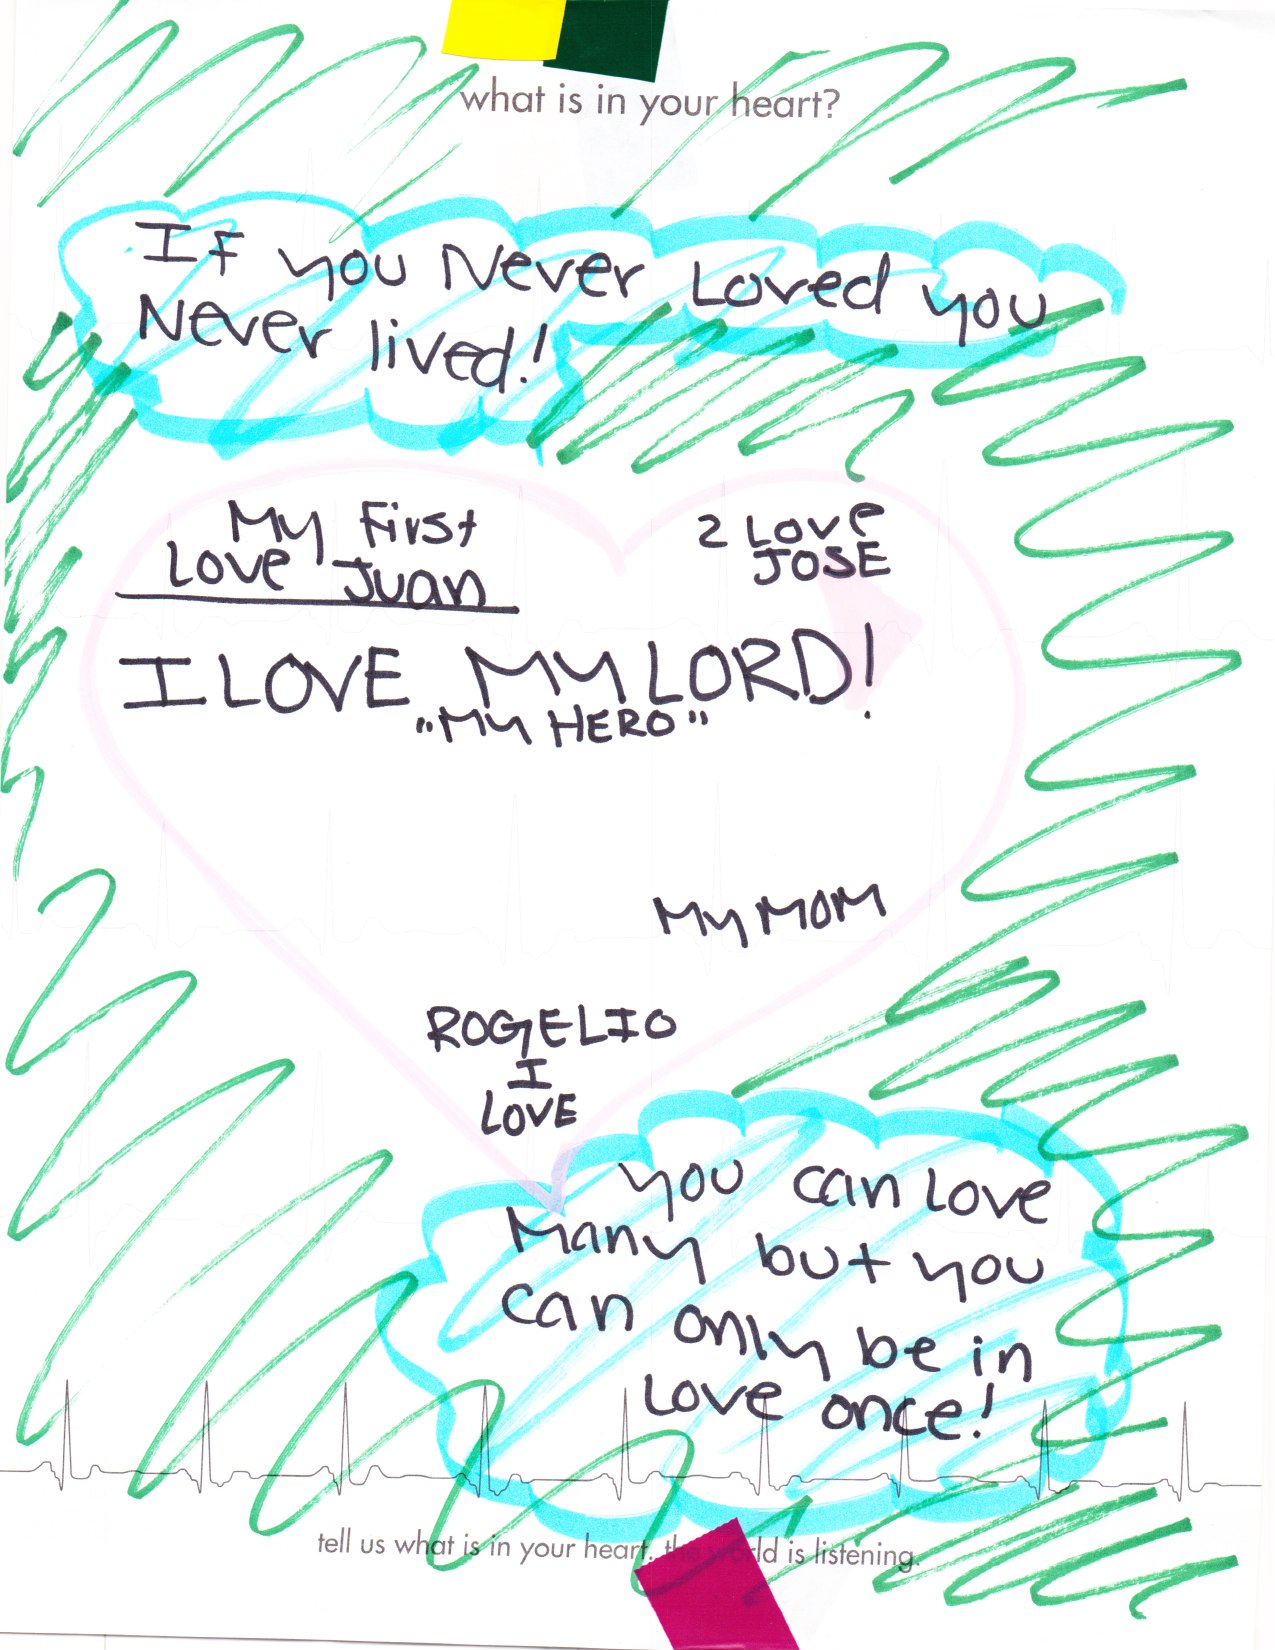 what is in your heart?
If you Never Loved you
Never lived!
My First
Love Juan
2 Love
JOSE
I LOVE MY LORD!
"MY HERO"
MY MOM
ROGELIO
I
LOVE
you can Love
Many but you
can only be in
Love once!
tell us what is in your heart. the world is listening.